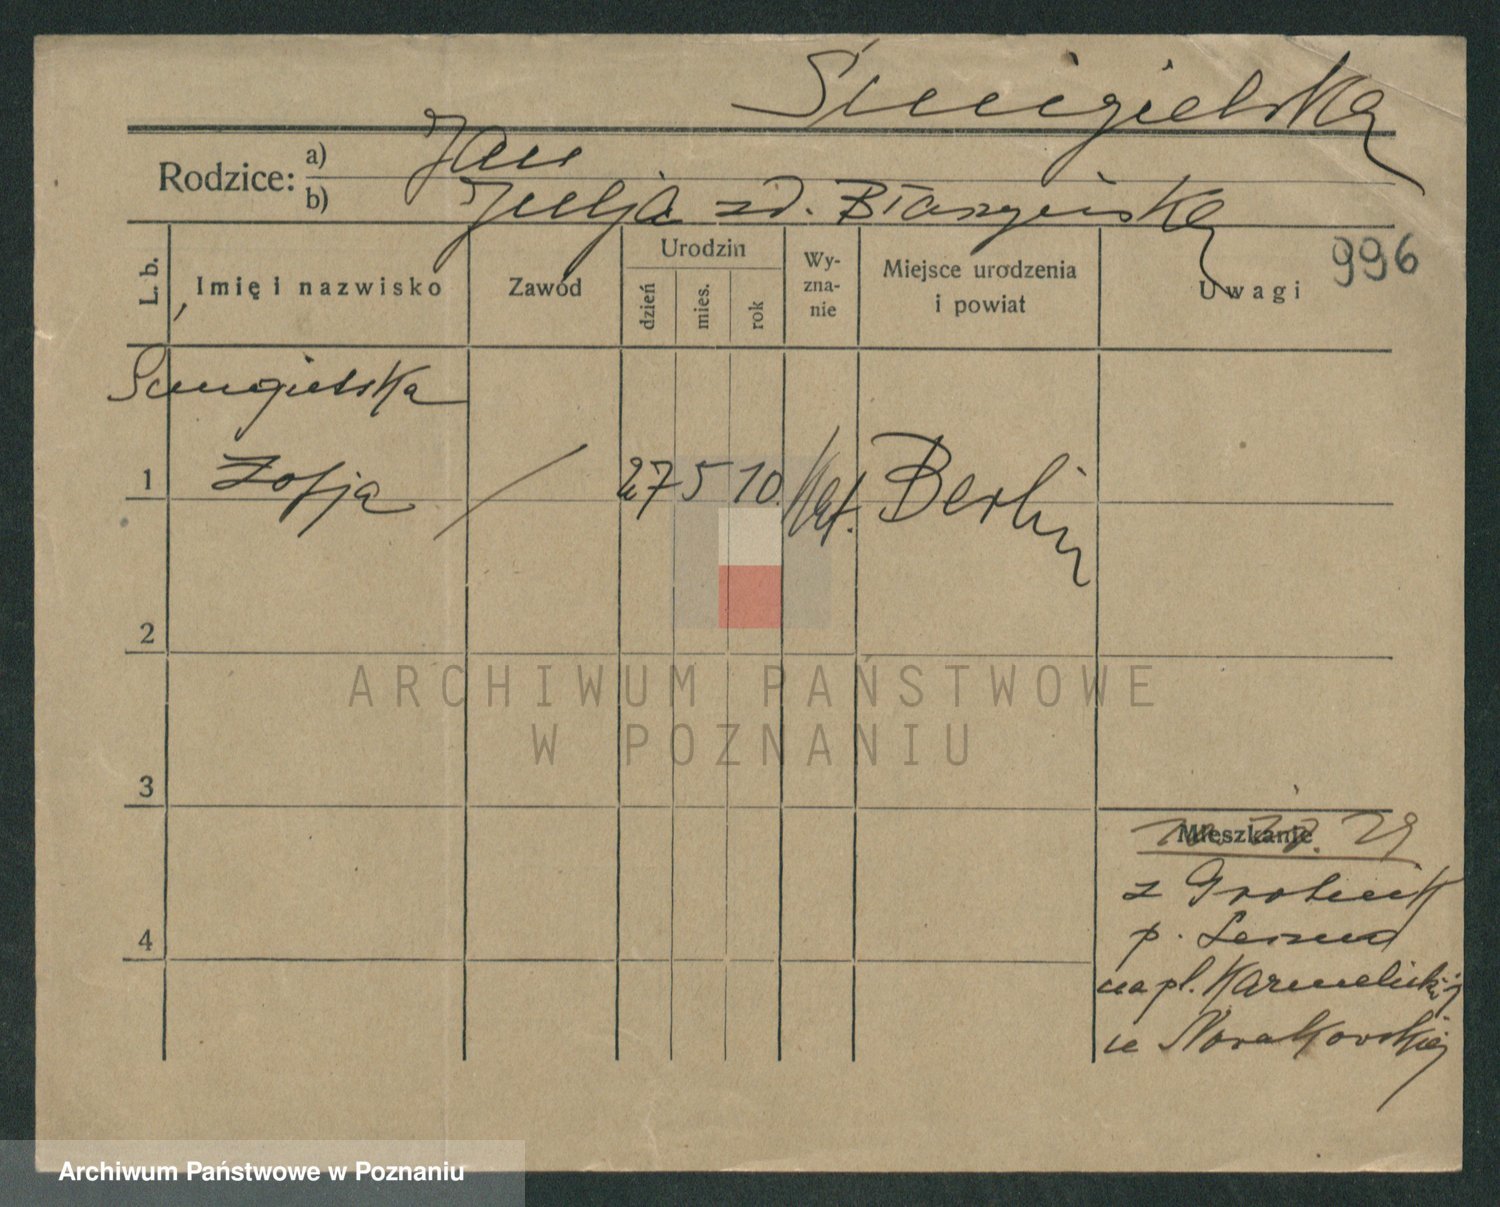 Śmigielska
Rodzice: a) Jan
b) Julja zd. Błaszyńska
996
L. b.
Imię i nazwisko
Zawód
Urodzin
dzień
mies.
rok
Wy-
zna-
nie
Miejsce urodzenia
i powiat
Uwagi
Śmigielska
1 Zofja / 27 5 10. kat. Berlin
2
3
4
Mieszkanie
29
z Grotnik
p. Leszno
na pl. Karmelicki
u Nowakowskiej
ARCHIWUM PAŃSTWOWE
W POZNANIU
Archiwum Państwowe w Poznaniu